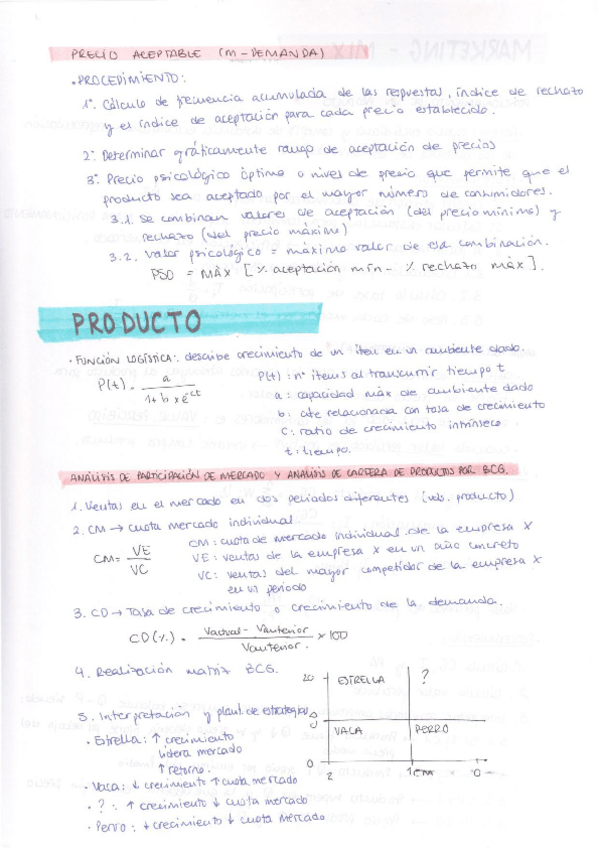 PRECIO ACEPTABLE (M-DEMANDA)
• PROCEDIMIENTO:
1º. Cálculo de frecuencia acumulada de las respuestas, índice de rechazo
y el índice de aceptación para cada precio establecido.
2º. Determinar gráficamente rango de aceptación de precios
3º. Precio psicológico óptimo o nivel de precio que permite que el
producto sea aceptado por el mayor número de consumidores.
3.1. Se combinan valores de aceptación (del precio mínimo) y
rechazo (del precio máximo)
3.2. Valor psicológico = máximo valor de esa combinación.
PSO = MÁX [% aceptación mín - % rechazo máx].
PRODUCTO
• FUNCIÓN LOGÍSTICA: describe crecimiento de un ítem en un ambiente dado.
P(t) = a / 1 + b x e^-ct
P(t): nº ítems al transcurrir tiempo t
a: capacidad máx de ambiente dado
b: cte relacionada con tasa de crecimiento
c: ratio de crecimiento intrínseco
t: tiempo.
ANÁLISIS DE PARTICIPACIÓN DE MERCADO Y ANÁLISIS DE CARTERA DE PRODUCTOS POR BCG.
1. Ventas en el mercado en dos periodos diferentes (uds. producto)
2. CM → cuota mercado individual
CM = VE / VC
CM: cuota de mercado individual de la empresa X
VE: ventas de la empresa X en un año concreto
VC: ventas del mayor competidor de la empresa X
en un periodo
3. CD → Tasa de crecimiento o crecimiento de la demanda.
CD (%) = Vactual - Vanterior / Vanterior x 100
4. Realización matriz BCG.
20
ESTRELLA
?
CD
VACA
PERRO
0
2
1 CM
0
5. Interpretación y plant. de estrategias
• Estrella: ↑ crecimiento
lidera mercado
↑ retorno.
• Vaca: ↓ crecimiento ↑ cuota mercado
• ?: ↑ crecimiento ↓ cuota mercado
• Perro: ↓ crecimiento ↓ cuota mercado